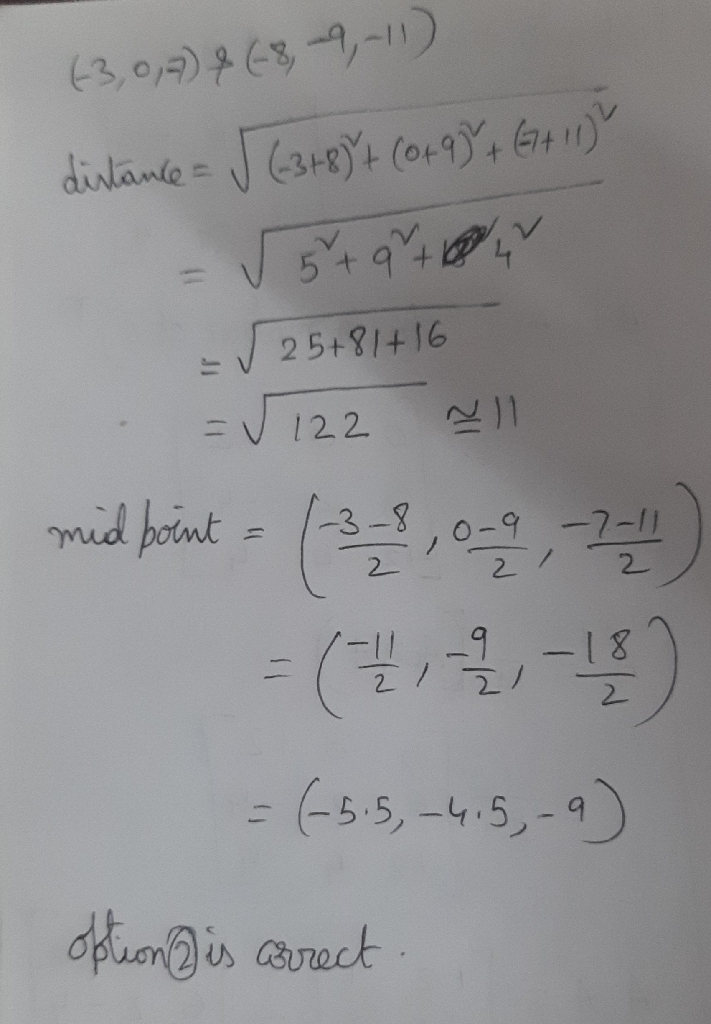 (-3,0,-7) & (-8, -9,-11)
distance = √(-3+8)² + (0+9)² + (-7+11)²
= √5² + 9² + 4²
= √25+81+16
= √122 ≅ 11
mid point = (-3-8/2, 0-9/2, -7-11/2)
= (-11/2, -9/2, -18/2)
= (-5.5, -4.5, -9)
option ② is correct.